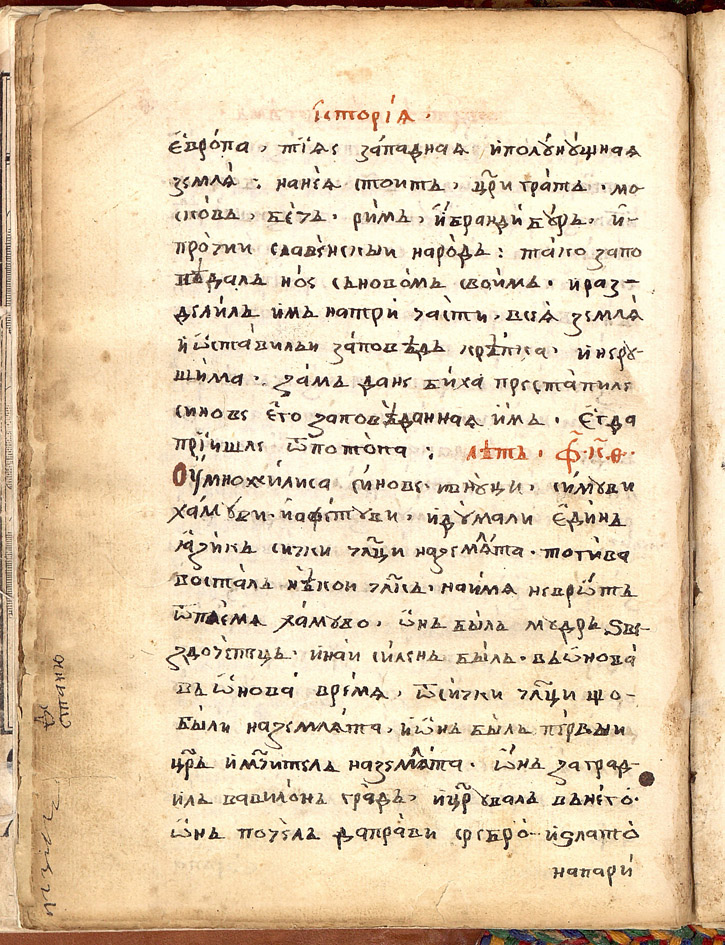 їсторїѧ ·
Єѵрѡ́па , тїѧе за́паднаѧ и҆полу́нѹ́щнаѧ
землѧ̀ : нане́ѧ стои́тъ , цр҃и гра́тъ · мо
ско́въ , бе́чъ · ри́мъ , и҆бранди́ бу́ръ , и҆ –
про́чии славѣ́нскыи наро́дъ : та́ко запо
вѣ́далъ но́е сыново́мъ свои́мъ · и҆раз –
дели́лъ и҆мъ натрѝ ча́сти , всеѧ̀ землѧ̀
и҆ѡ҆ста́вилъи за́повѣдь крѣ́пка · и҆нерꙋ
ши́ма · за́мъ дане би́ха преста́пиле
синове є҆го запове́даннаѧ и҆мъ · Єгда
прїи́шле ѿпото́па : лѣтъ · ф҃·к҃·ѳ ·
Оу҆мно́жилиса си́нове · внꙋци , си́муви
ха́муви · и҆афе́туви , и҆дума́ли є҆ди́нъ
ꙗ҆зи́къ сички чл҃ци наземлѧ́та · тоги́ва
воста́лъ нѣ́кои чл҃къ · наи́мѧ невро́тъ
ѿпле́мѧ ха́муво , ѡ҆нъ бы́лъ мꙋдръ ѕве
здоче́тецъ · и҆наи си́ленъ бы́лъ · въѡ҆нова̀
въѡ҆нова̀ вре́мѧ , ѿсички чл҃ци що –
бы́ли наземлѧ́та , и҆ѡ҆нъ бы́лъ пе́рвыи
цр҃ъ и҆мꙋ́чителъ наземлѧ́та · ѡ҆нъ заград –
и́лъ вавило́нъ гра́дъ , и҆цр҃увалъ въне́го ·
ѡ҆нъ поче́лъ дапра́ви сребро̀ и҆ѕлато̀
напари́
станю